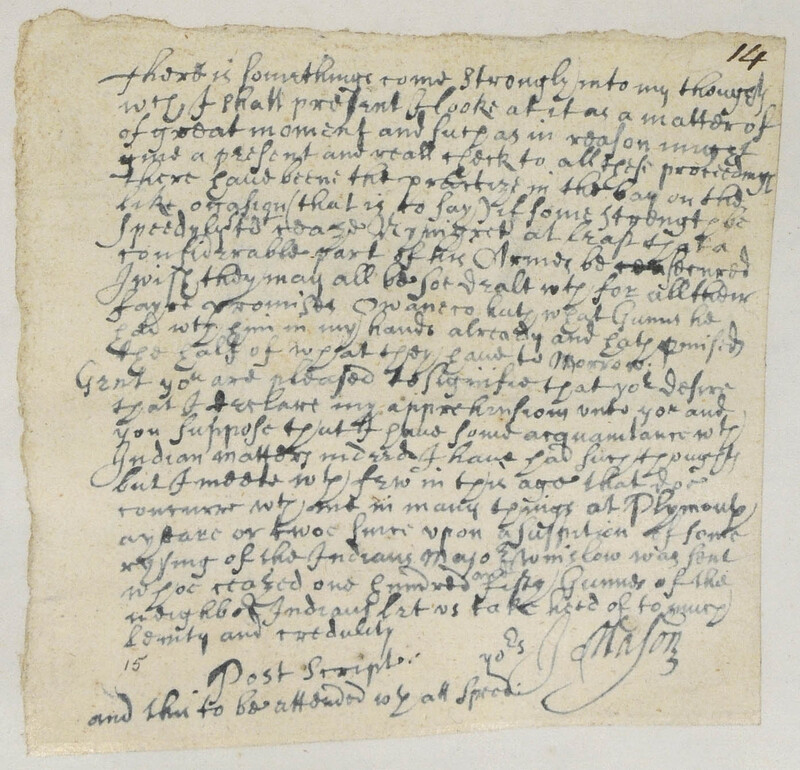 14
There is somethinge come strongly into my thoughts
wch I shall present I looke at it as a matter of
of great moment and such as in reason might
give a present and reall check to all these proceedings
there have beene the practize in the bay on the
like occasion (that is to say) if some strength be
speedyly to ceaze Nynigret at least that a
considerable part of his Armes be secured
I wish they may all be soe dealt wth for all their
fayre promises Owaneco hath what Gunns he
had wth him in my hands already and hath promised
the half of what they have to Morrow.
Gent you are pleased to signifie that yor desire
that I declare my apprehensions unto you and
you suppose that I have some acquaintance wth
Indian matters indeed I have had such thoughts
but I meete wth few in this age that doe
concurre wth me in many things at Plymouth
a yeare or twoe since upon a suspition of some
rysing of the Indians Major Winslow was sent
whoe ceazed one hundred and fifty Gunns of the
neighbor Indians let us take heed of to much
lenity and credulity
15 yors J Mason
Post Script:
and this to be attended wth all speed: